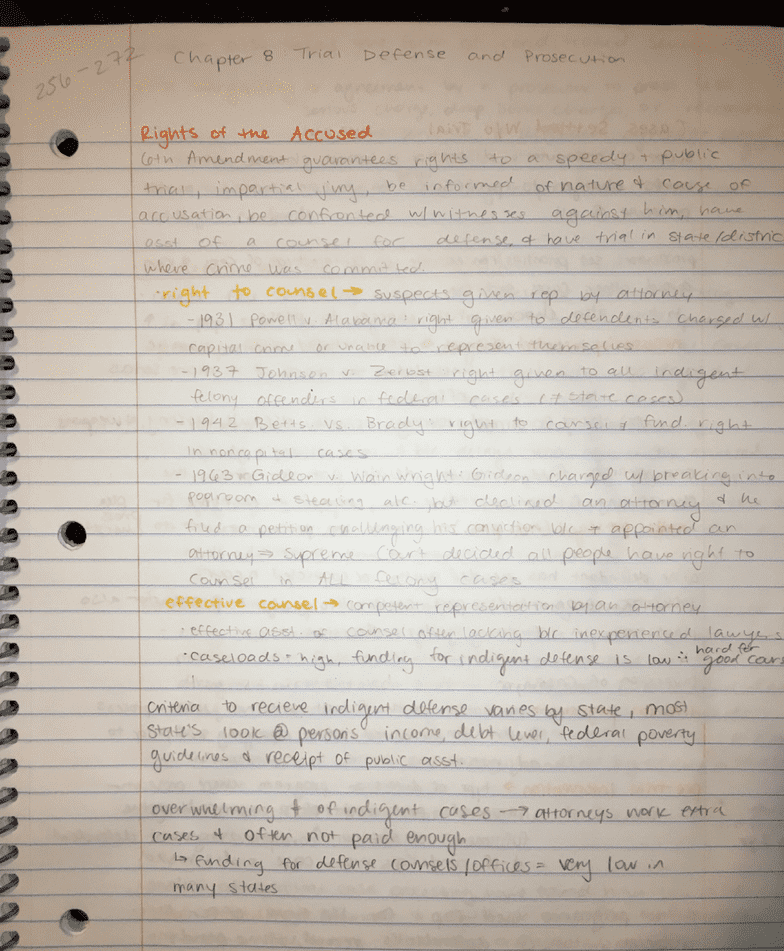 256-272
Chapter 8 Trial Defense and Prosecution
Rights of the Accused
6th Amendment guarantees rights to a speedy + public
trial, impartial jury, be informed of nature & cause of
accusation, be confronted w/witnesses against him, have
asst of a counsel for defense, & have trial in state/distric
where crime was committed.
·right to counsel → suspects given rep by attorney
-1931 Powell v. Alabama: right given to defendents charged w/
capital crime or unable to represent themselves
-1937 Johnson v. Zerbst right given to all indigent
felony offenders in federal cases (≠ state cases)
-1942 Betts vs. Brady: right to counsel ≠ fund. right
in noncapital cases
- 1963 Gideon v. Wainwright: Gideon charged w/ breaking into
poolroom + stealing alc. but declined an attorney & he
filed a petition challenging his conviction b/c ≠ appointed an
attorney ⇒ Supreme Court decided all people have right to
counsel in ALL felony cases
effective counsel → competent representation by an attorney
·effective asst. of counsel often lacking b/c inexperienced lawyers
·caseloads - high, funding for indigent defense is low ∴ hard for
good couns
criteria to recieve indigent defense varies by state, most
state's look @ persons' income, debt level, federal poverty
guidelines & receipt of public asst.
overwhelming # of indigent cases → attorneys work extra
cases & often not paid enough
↳ funding for defense counsels/offices = very low in
many states